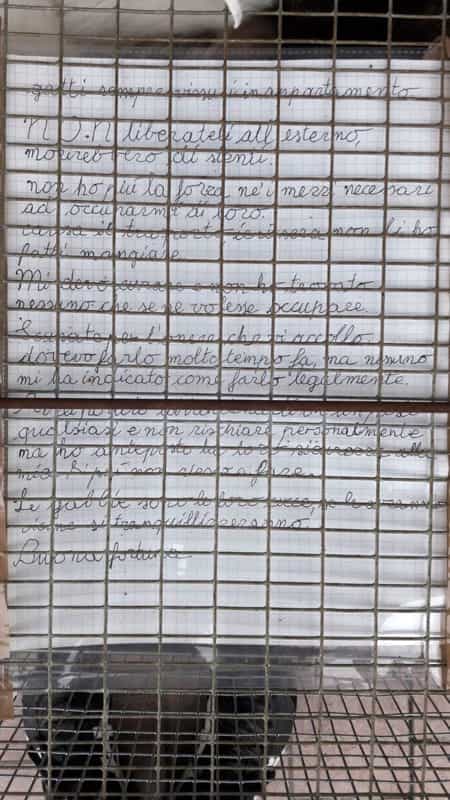 gatti sempre vissuti in appartamento
NON liberateli all'esterno,
morirebbero di stenti.
non ho più la forza nè i mezzi necessari
ad occuparmi di loro.
causa il trasporto ieri sera non li ho
fatti mangiare
Mi devo curare e non ho trovato
nessuno che se ne volesse occupare.
Scusate per l'onere che vi accollo.
dovevo farlo molto tempo fa, ma nessuno
mi ha indicato come farlo legalmente.
qualsiasi e non rischiare personalmente
ma ho anteposto la loro sicurezza alla
mia. Di più non riesco a fare.
Le gabbie sono le loro cucce, se le
si tranquillizzeranno.
Buona fortuna